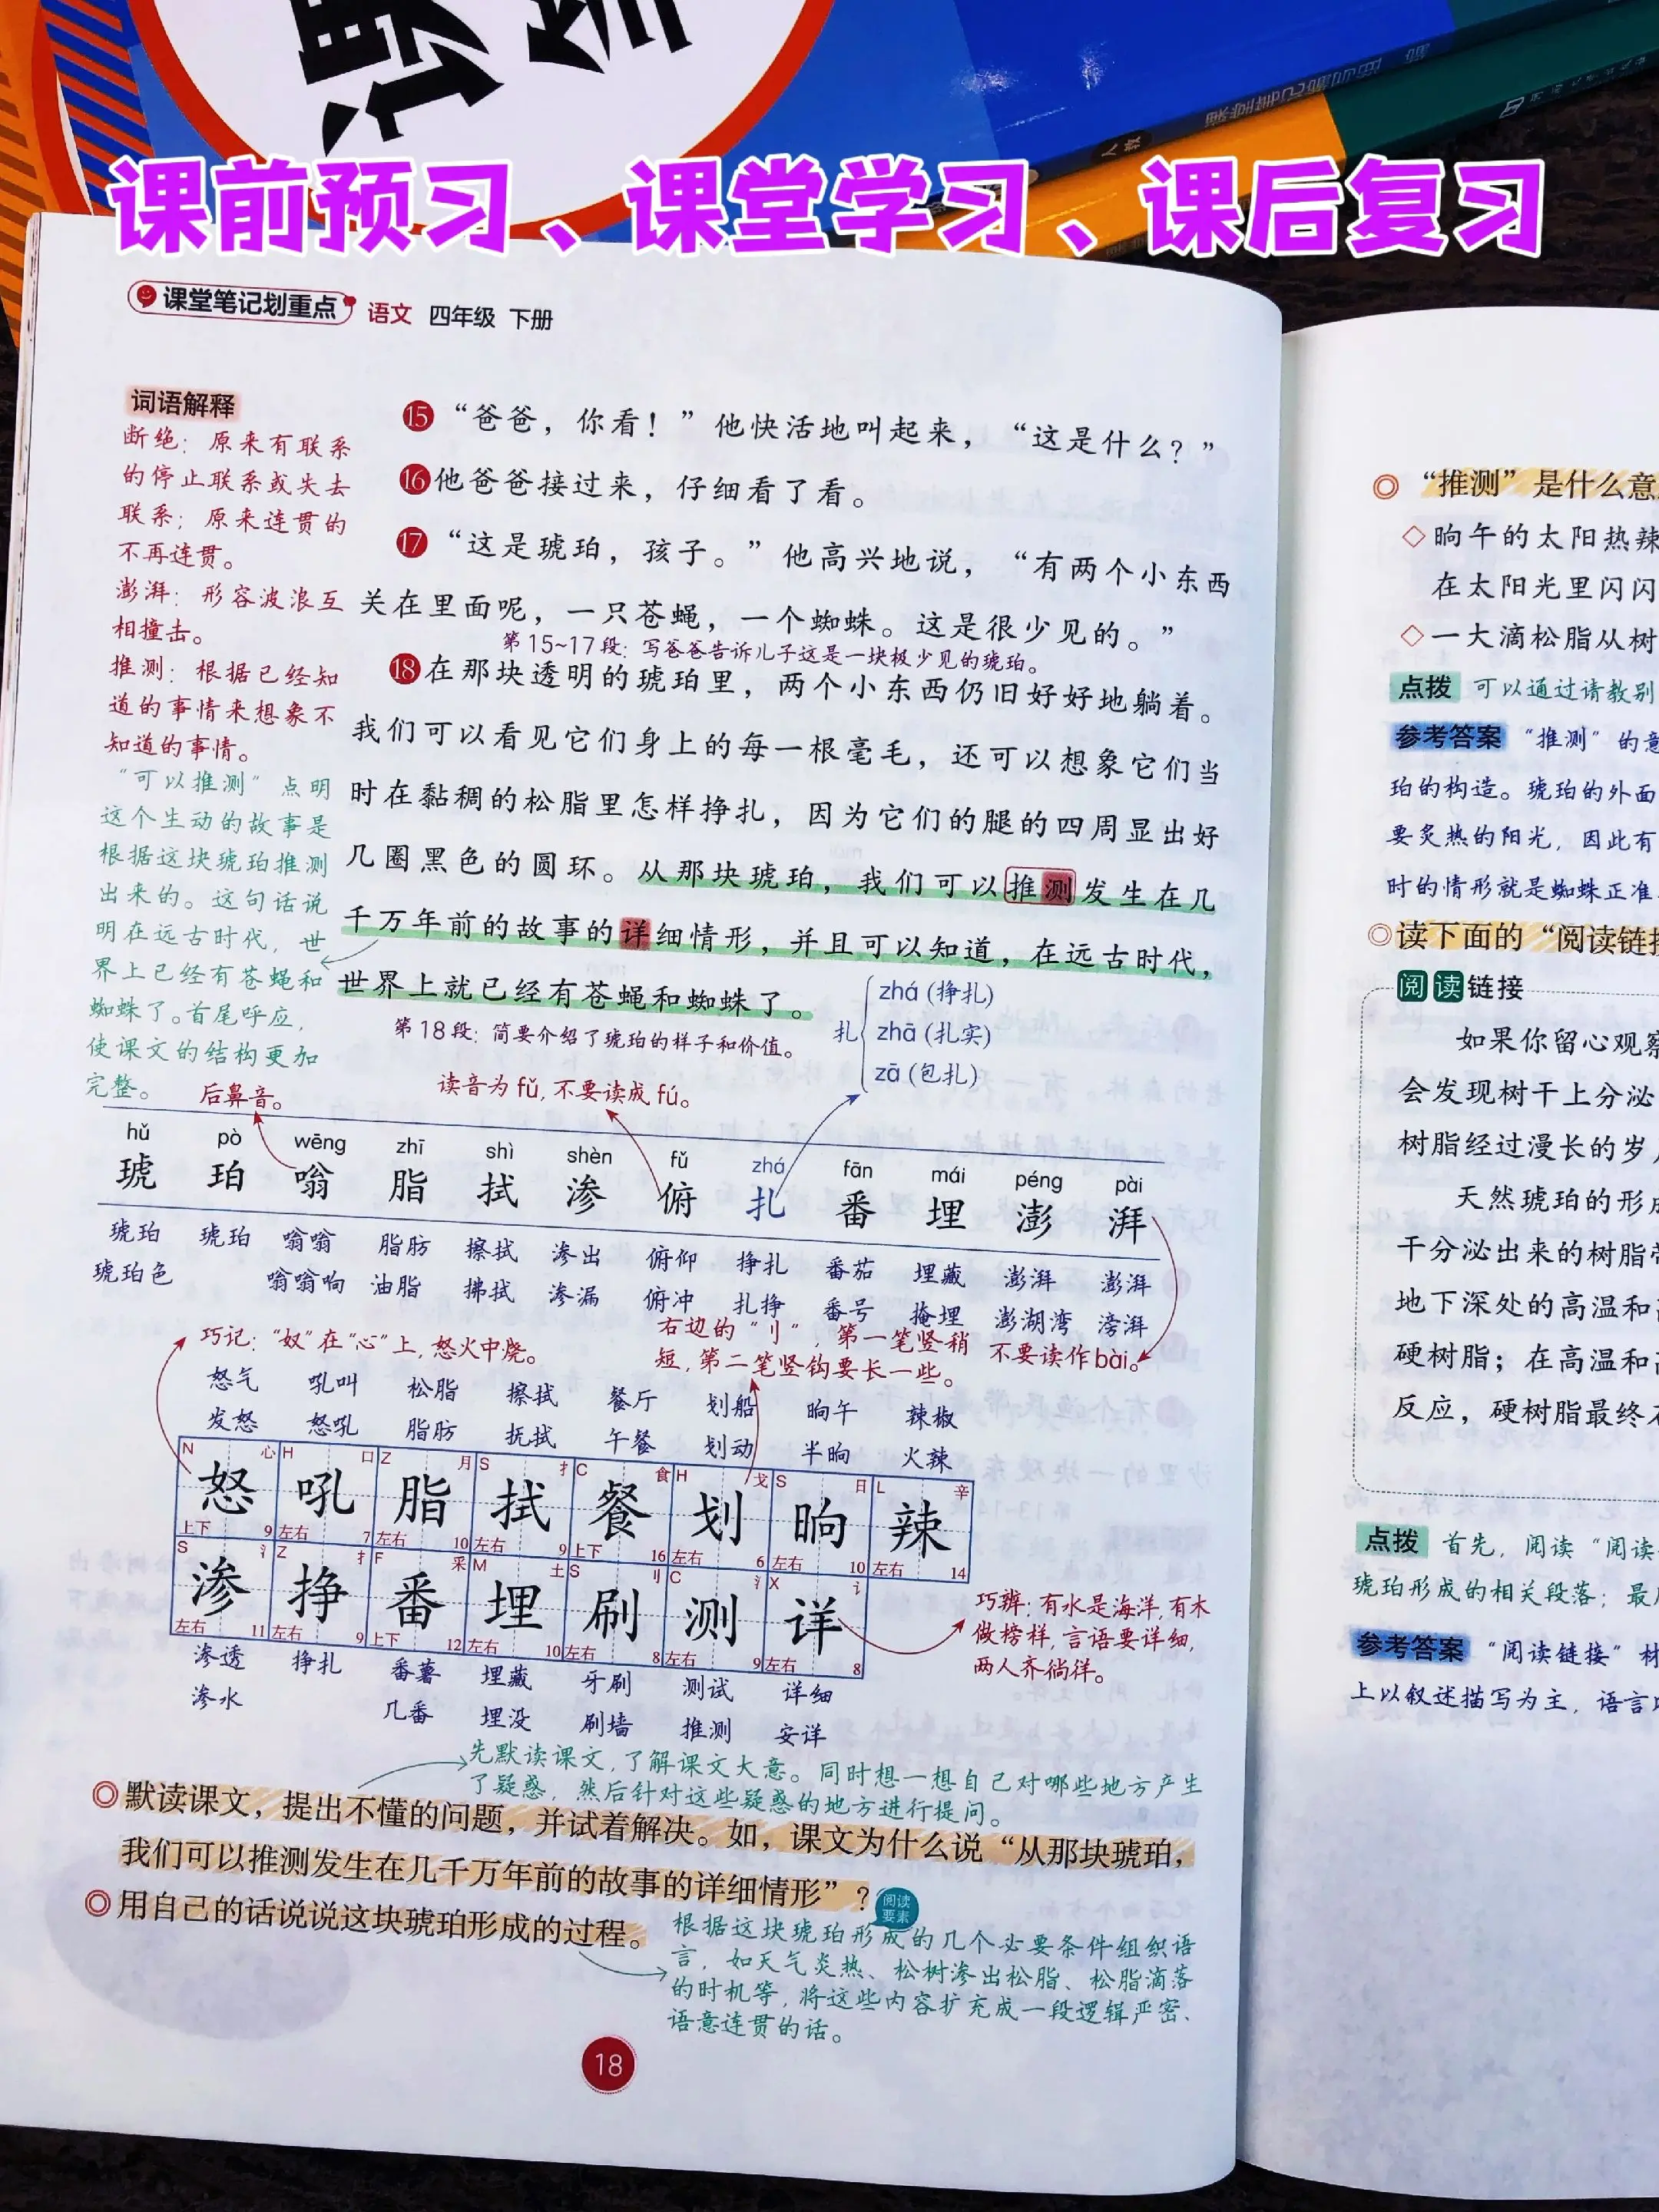 课前预习、课堂学习、课后复习
课堂笔记划重点 语文 四年级 下册
词语解释
断绝：原来有联系
的停止联系或失去
联系；原来连贯的
不再连贯。
澎湃：形容波浪互
相撞击。
推测：根据已经知
道的事情来想象不
知道的事情。
“可以推测”点明
这个生动的故事是
根据这块琥珀推测
出来的。这句话说
明在远古时代，世
界上已经有苍蝇和
蜘蛛了。首尾呼应，
使课文的结构更加
完整。
⑮“爸爸，你看！”他快活地叫起来，“这是什么？”
⑯他爸爸接过来，仔细看了看。
⑰“这是琥珀，孩子。”他高兴地说，“有两个小东西
关在里面呢，一只苍蝇，一个蜘蛛。这是很少见的。”
第15~17段：写爸爸告诉儿子这是一块极少见的琥珀。
⑱在那块透明的琥珀里，两个小东西仍旧好好地躺着。
我们可以看见它们身上的每一根毫毛，还可以想象它们当
时在黏稠的松脂里怎样挣扎，因为它们的腿的四周显出好
几圈黑色的圆环。从那块琥珀，我们可以推测发生在几
千万年前的故事的详细情形，并且可以知道，在远古时代，
世界上就已经有苍蝇和蜘蛛了。
第18段：简要介绍了琥珀的样子和价值。
扎
zhá (挣扎)
zhā (扎实)
zā (包扎)
后鼻音。
读音为fǔ,不要读成fú。
hǔ pò wēng zhī shì shèn fǔ zhá fān mái péng pài
琥 珀 嗡 脂 拭 渗 俯 扎 番 埋 澎 湃
琥珀 琥珀 嗡嗡 脂肪 擦拭 渗出 俯仰 挣扎 番茄 埋藏 澎湃 澎湃
琥珀色 嗡嗡响 油脂 拂拭 渗漏 俯冲 扎挣 番号 掩埋 澎湖湾 滂湃
巧记：“奴”在“心”上,怒火中烧。
右边的“刂”，第一笔竖稍
短,第二笔竖钩要长一些。
不要读作bài。
怒气 吼叫 松脂 擦拭 餐厅 划船 晌午 辣椒
发怒 怒吼 脂肪 抚拭 午餐 划动 半晌 火辣
N 心 H 口 Z 月 S 扌 C 食 H 戈 S 日 L 辛
怒 吼 脂 拭 餐 划 晌 辣
上下 9 左右 7 左右 10 左右 9 上下 16 左右 6 左右 10 左右 14
S 氵 Z 扌 F 采 M 土 S 刂 C 氵 X 讠
渗 挣 番 埋 刷 测 详
左右 11 左右 9 上下 12 左右 10 左右 8 左右 9 左右 8
渗透 挣扎 番薯 埋藏 牙刷 测试 详细
渗水 几番 埋没 刷墙 推测 安详
巧辨：有水是海洋,有木
做榜样,言语要详细,
两人齐徜徉。
先默读课文,了解课文大意。同时想一想自己对哪些地方产生
了疑惑，然后针对这些疑惑的地方进行提问。
◎默读课文，提出不懂的问题，并试着解决。如，课文为什么说“从那块琥珀，
我们可以推测发生在几千万年前的故事的详细情形”？
阅读
要素
◎用自己的话说说这块琥珀形成的过程。
根据这块琥珀形成的几个必要条件组织语
言，如天气炎热、松树渗出松脂、松脂滴落
的时机等,将这些内容扩充成一段逻辑严密、
语意连贯的话。
18
◎“推测”是什么意
◇晌午的太阳热辣
在太阳光里闪闪
◇一大滴松脂从树
点拨 可以通过请教别
参考答案 “推测”的意
珀的构造。琥珀的外面
要炙热的阳光，因此有
时的情形就是蜘蛛正准
◎读下面的“阅读链接
阅读链接
如果你留心观察
会发现树干上分泌
树脂经过漫长的岁月
天然琥珀的形成
干分泌出来的树脂带
地下深处的高温和高
硬树脂；在高温和高
反应，硬树脂最终石
点拨 首先，阅读“阅读
琥珀形成的相关段落；最后
参考答案 “阅读链接”材
上以叙述描写为主，语言